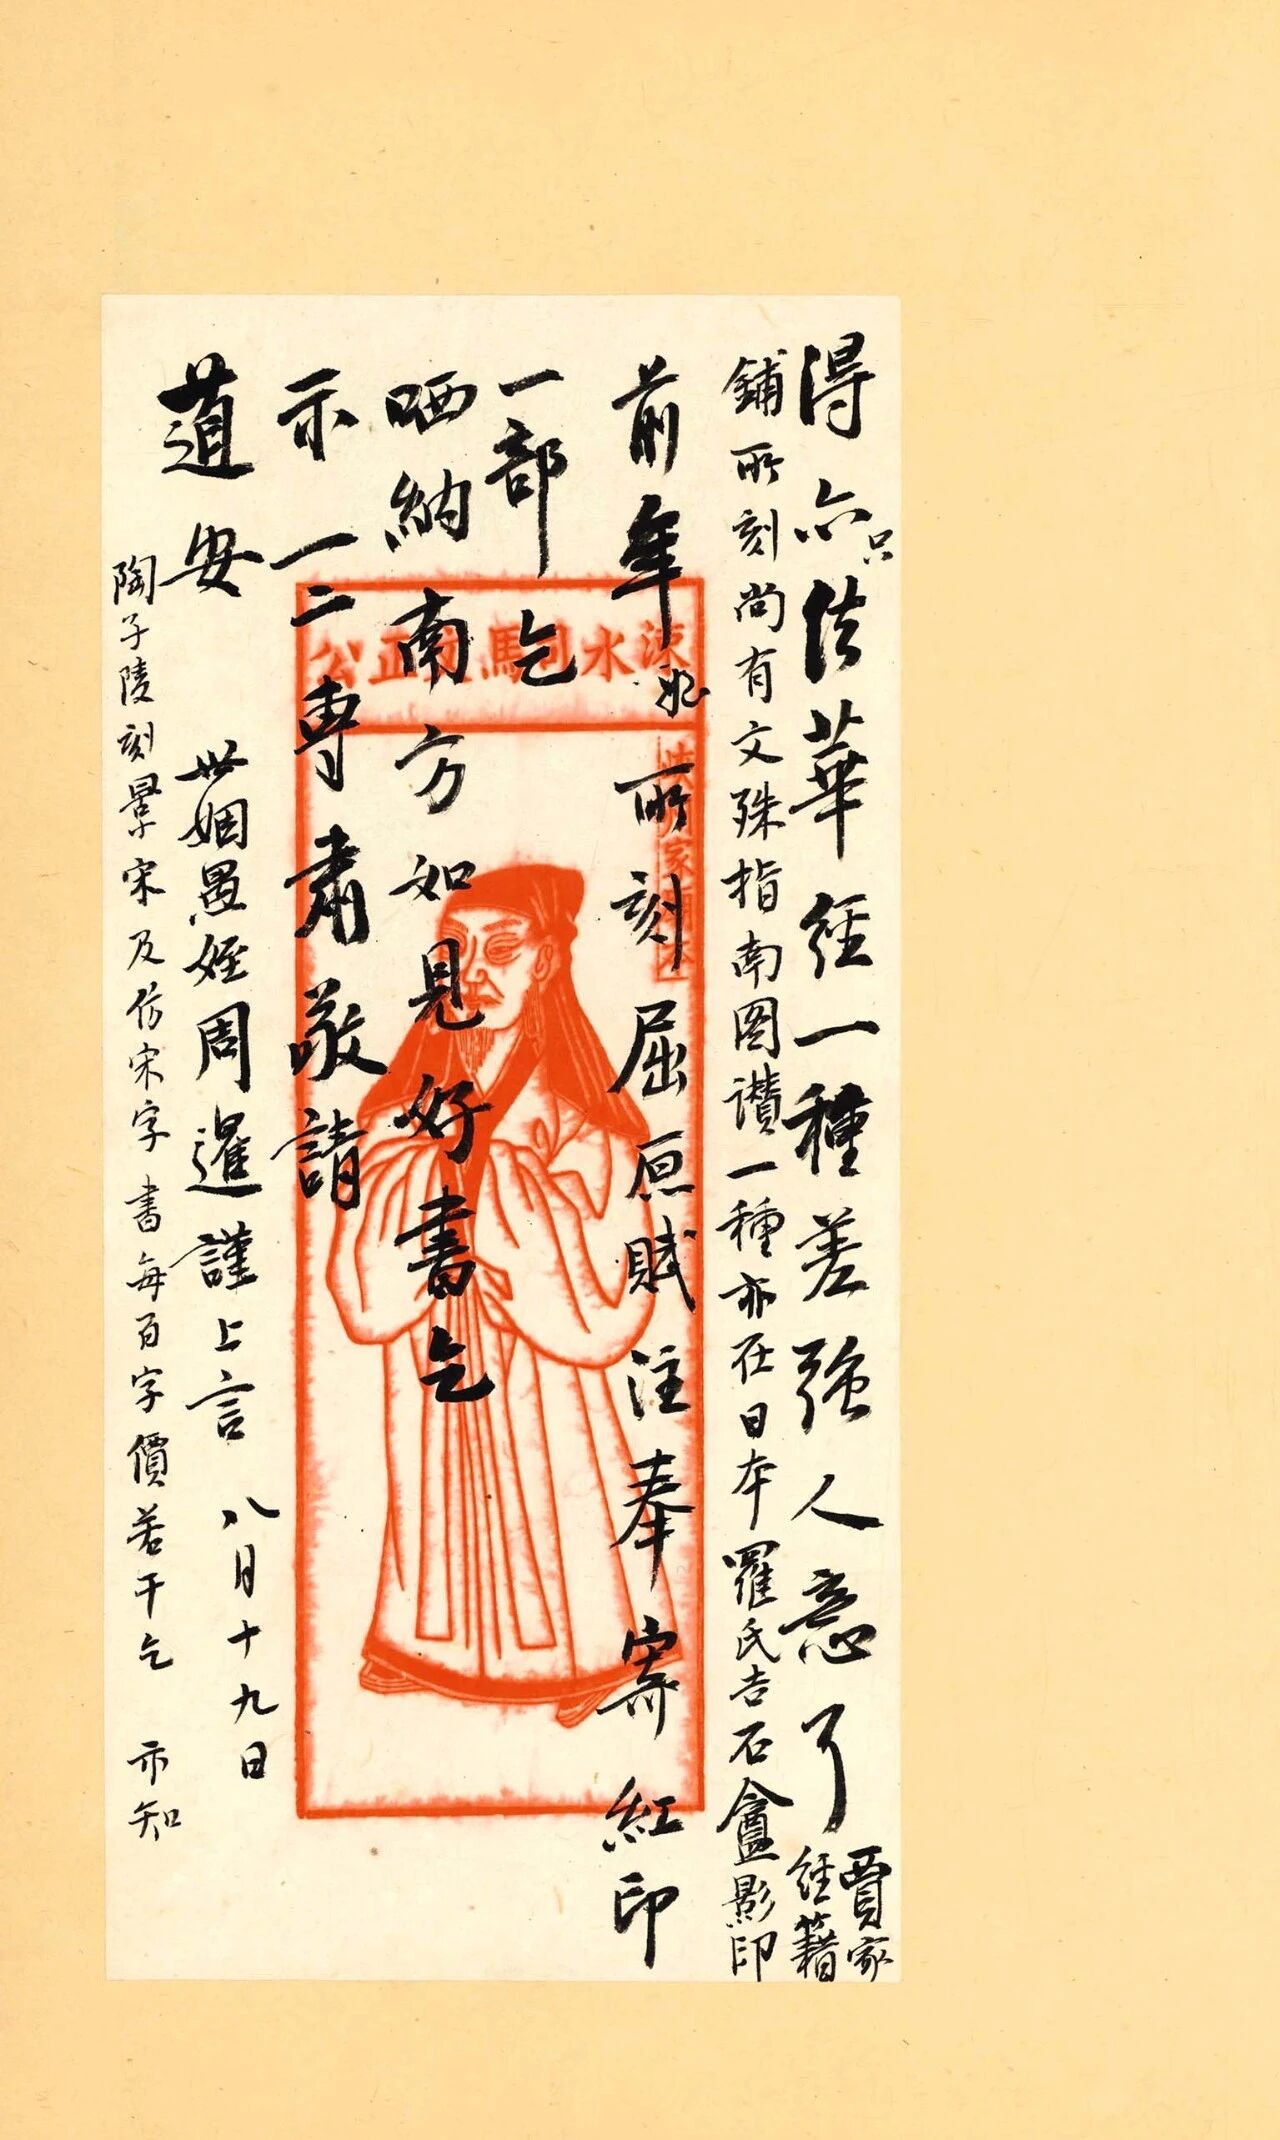 得亦只法華經一種差強人意耳賈家經籍
鋪所刻尚有文殊指南圖讚一種亦在日本羅氏吉石盦影印
前年亂所刻屈原賦注奉寄紅印
一部乞
哂納南方如見好書乞
示一二專肅敬請
道安
世姻愚姪周暹謹上言 八月十九日
陶子陵刻景宋及仿宋字書每百字價若干乞 示知
涑水司馬正公